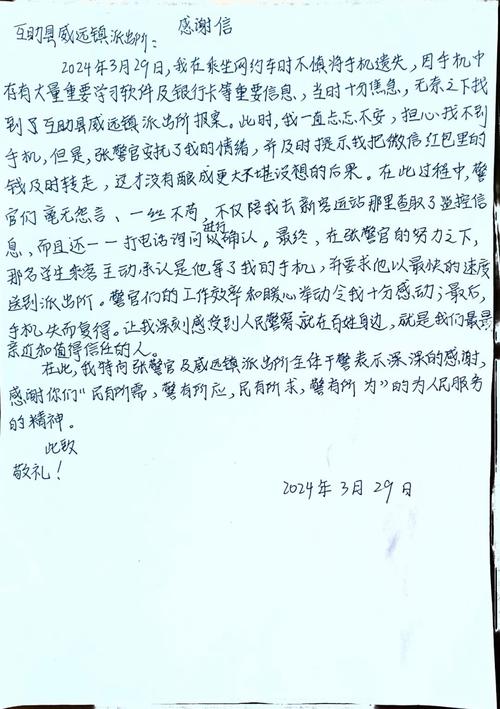 感谢信
互助县威远镇派出所:
2024年3月29日,我在乘坐网约车时不慎将手机遗失,因手机中
存有大量重要学习软件及银行卡等重要信息,当时十分焦急,无奈之下找
到了互助县威远镇派出所报案。此时,我一直忐忑不安,担心找不到
手机,但是,张警官安抚了我的情绪,并及时提示我把微信红包里的
钱及时转走,这才没有酿成更大不堪设想的后果。在此过程中,警
官们毫无怨言、一丝不苟,不仅陪我去新客运站那里查取了监控信
息,而且还一一打电话询问进行确认。最终,在张警官的努力之下,
那名学生乘客主动承认是他拿了我的手机,并要求他以最快的速度
送到派出所。警官们的工作效率和暖心举动令我十分感动;最后,
手机失而复得。让我深刻感受到人民警察就在百姓身边,就是我们最
亲近和值得信任的人。
在此,我特向张警官及威远镇派出所全体干警表示深深的感谢,
感谢你们“民有所需,警有所应,民有所求,警有所为”的为人民服务
的精神。
此致
敬礼!
2024年3月29日